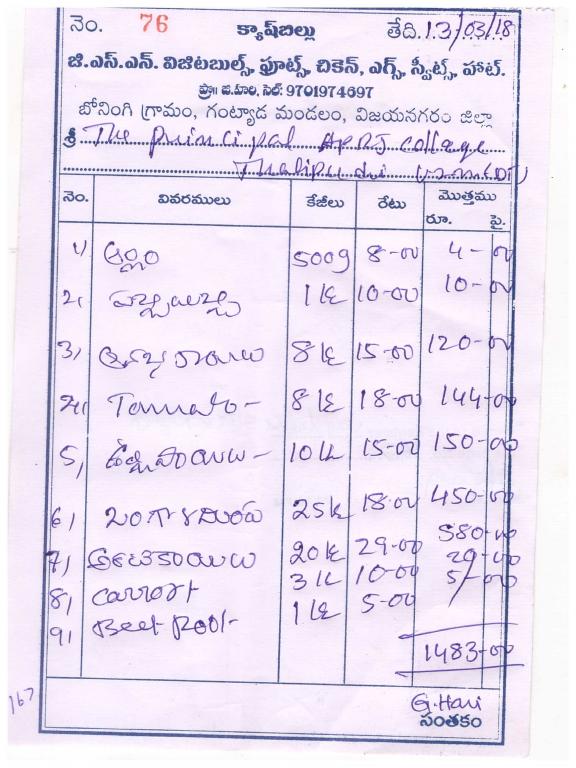 నెం. 76 క్యాష్‌బిల్లు తేది. 13/03/18
జి.ఎస్.ఎన్. విజిటబుల్స్, ఫ్రూట్స్, చికెన్, ఎగ్స్, స్వీట్స్, హాట్.
ప్రొ॥ జి.హరి, సెల్: 9701974697
బోనింగి గ్రామం, గంట్యాడ మండలం, విజయనగరం జిల్లా
శ్రీ The Principal APRJ. College
నెం. వివరములు కేజీలు రేటు మొత్తము
రూ. పై.
1) అల్లం 500g 8-00 4-00
2, 1 k 10-00 10-00
3, 8 k 15-00 120-00
4, Tamato- 8 k 18-00 144-00
5, ఉల్లిపాయలు- 10 k 15-00 150-00
6) బంగాళదుంప 25 k 18-00 450-00
7) అరటికాయలు 20k 29-00 580-00
8) Carrort 3 k 10-00 29-00
9) Beet Root- 1 k 5-00 5/-00
1483-00
167
G. Hari
సంతకం